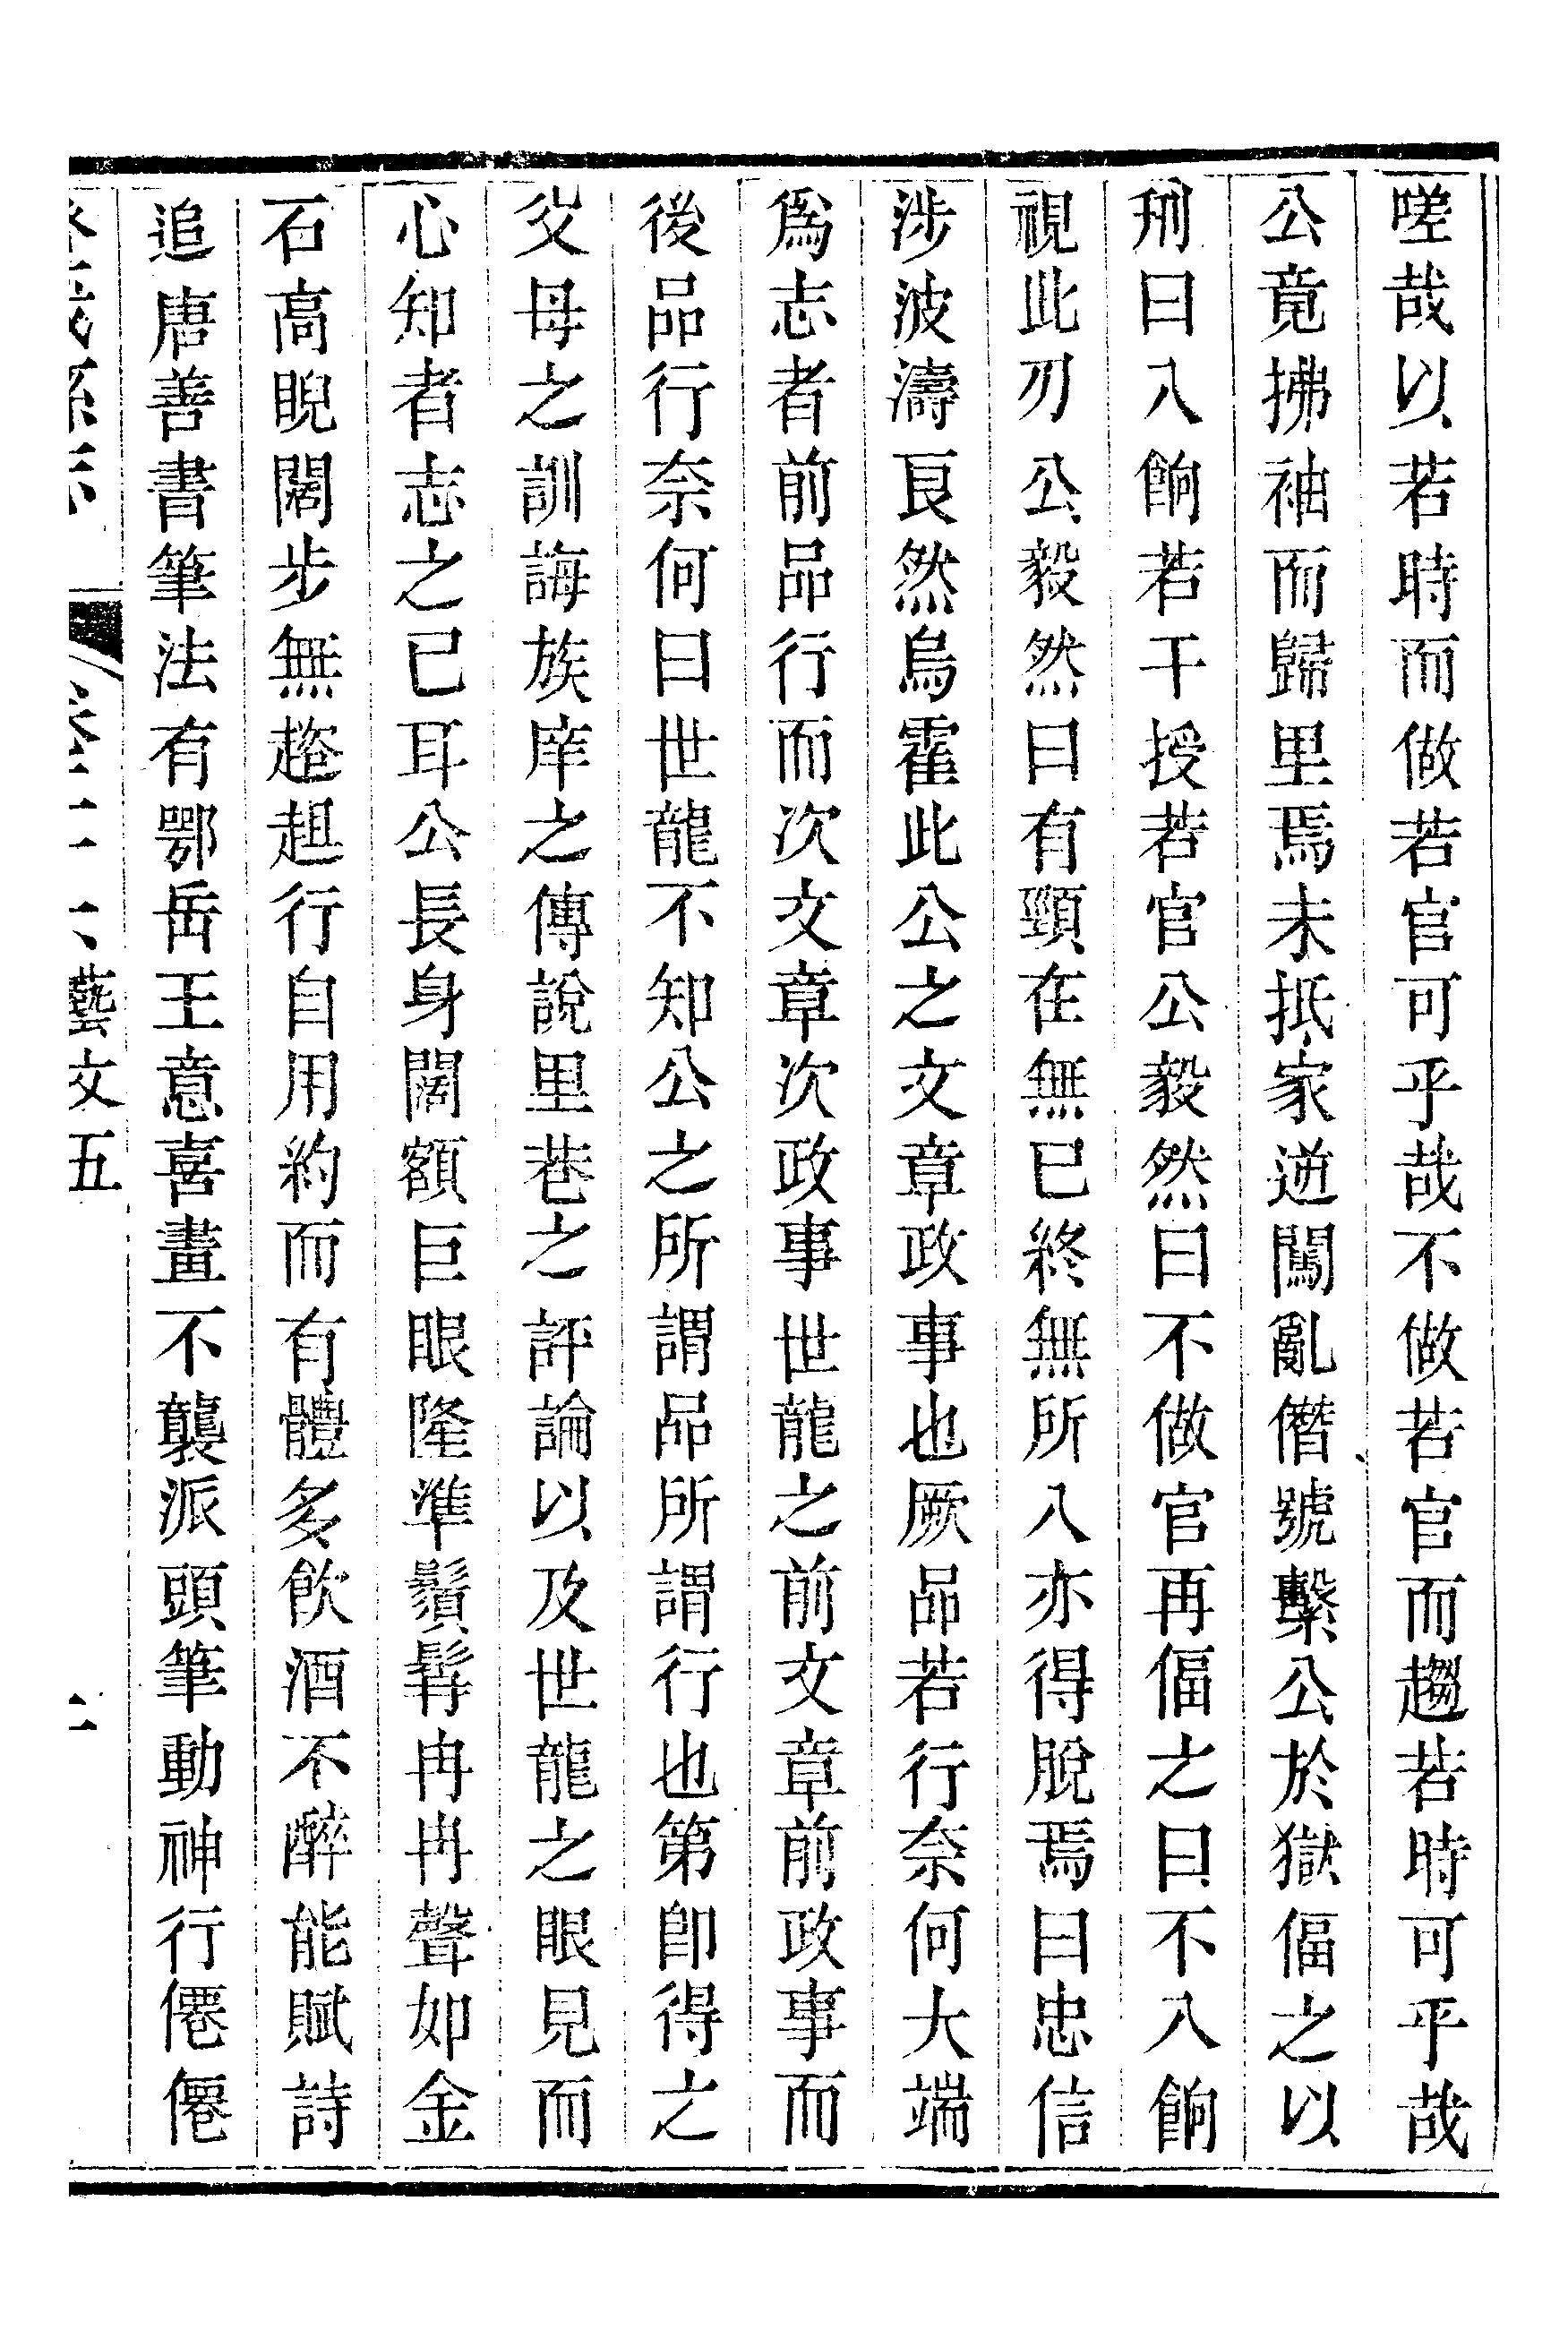 嗟哉以若時而做若官可乎哉不做若官而趨若時可乎哉
公竟拂袖而歸里焉未抵家逆闖亂僭號繫公於獄偪之以
刑曰入餉若干授若官公毅然曰不做官再偪之曰不入餉
視此刃公毅然曰有頸在無已終無所入亦得脫焉曰忠信
涉波濤良然烏霍此公之文章政事也厥品若行奈何大端
爲志者前品行而次文章次政事世龍之前文章前政事而
後品行奈何曰世龍不知公之所謂品所謂行也第卽得之
父母之訓誨族庠之傳說里巷之評論以及世龍之眼見而
心知者志之已耳公長身闊額巨眼隆準鬚髯冉冉聲如金
石高睨闊步無趦趄行自用約而有體多飲酒不醉能賦詩
追唐善書筆法有鄂岳王意喜畫不襲派頭筆動神行僊僊
藝文五